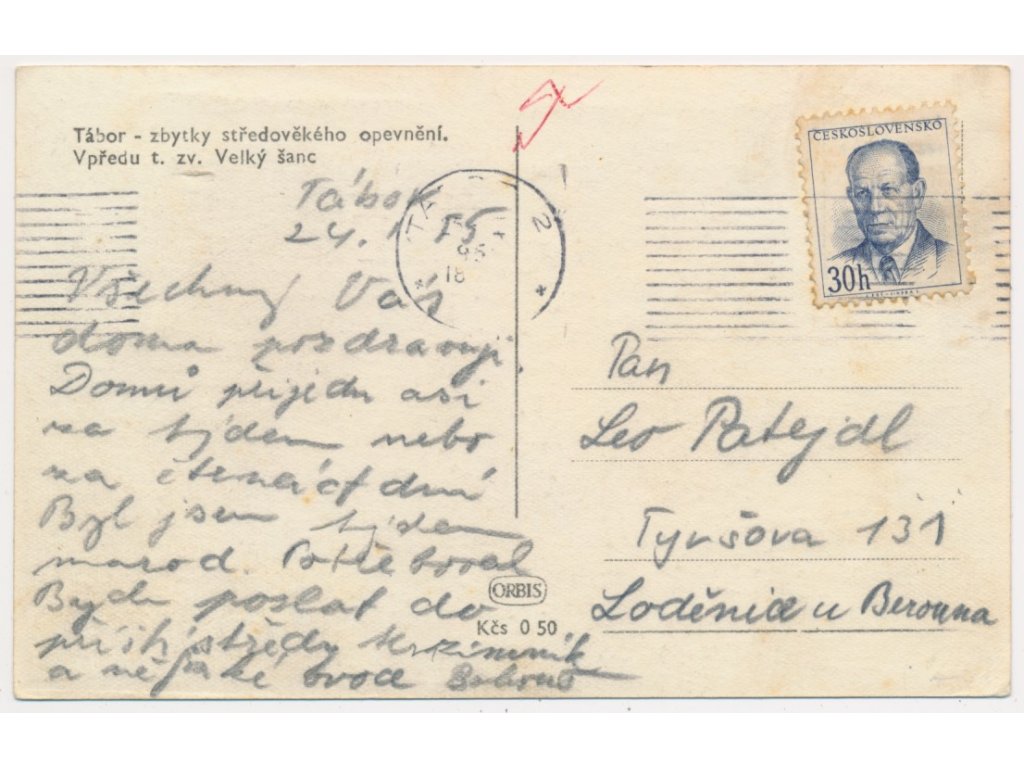 Tábor - zbytky středověkého opevnění.
Vpředu t. zv. Velký šanc
Tábor
24. 55
Všechny Vás
doma pozdravuji
Domů přijedu asi
za týden nebo
za čtrnáct dní
Byl jsem týden
marod. Potřeboval
Bych poslat do
příští středy
a nějaké
ORBIS
Kčs 0 50
2
18
ČESKOSLOVENSKO
30h
Pan
Leo Patejdl
Tyršova 131
Loděnice u Berouna